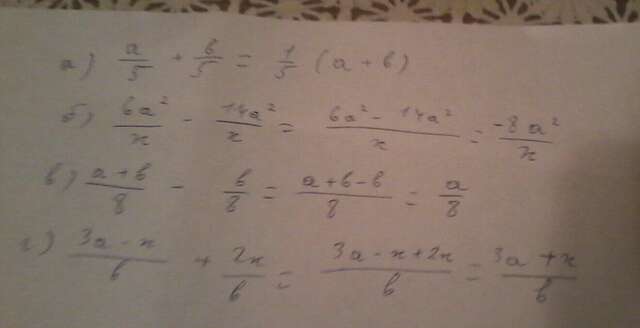 а) a/5 + b/5 = 1/5 (a + b)
б) 6a²/x - 14a²/x = 6a² - 14a²/x = -8a²/x
в) a + b/8 - b/8 = a + b - b/8 = a/8
г) 3a - x/b + 2x/b = 3a - x + 2x/b = 3a + x/b